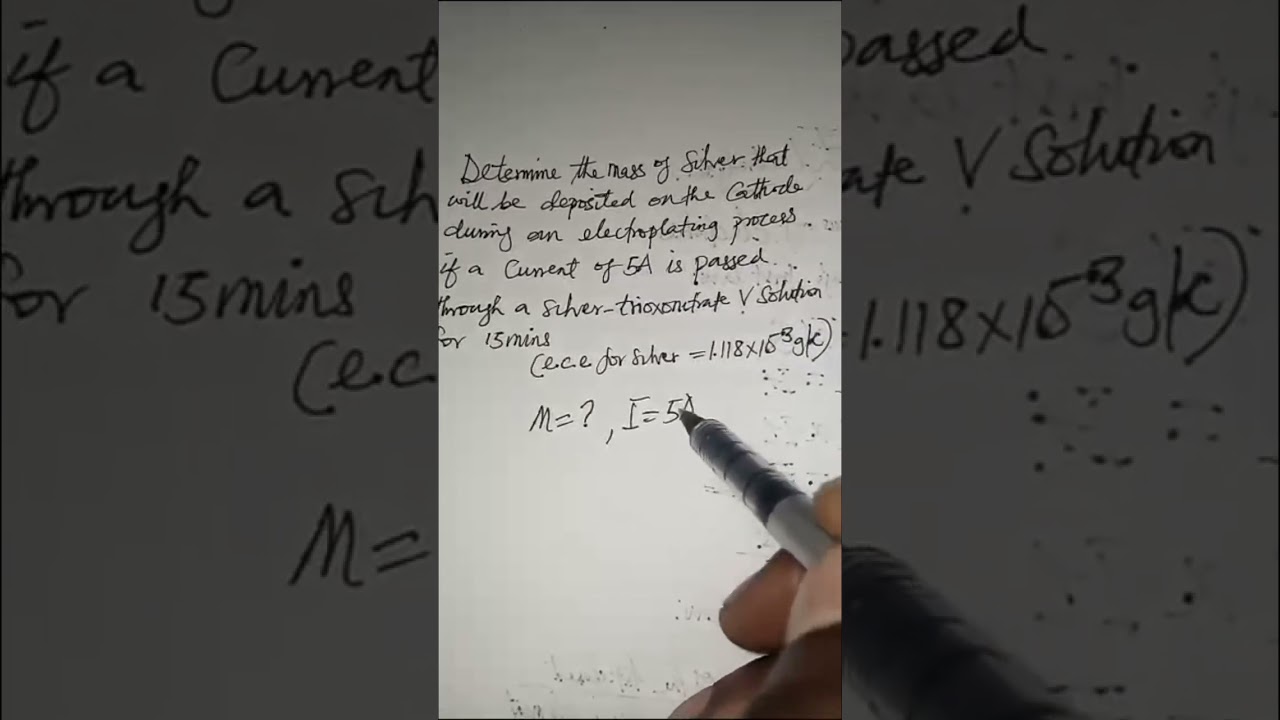 Determine the mass of Silver that
will be deposited on the Cathode
during an electroplating process
if a Current of 5A is passed
through a Silver-trioxonitrate V Solution
for 15mins
(e.c.e for Silver = 1.118×10⁻³g/c)
M=? , I=5A